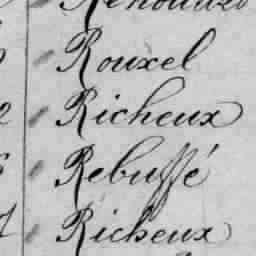 Rouxel
Richeux
Rebuffé
Richeux